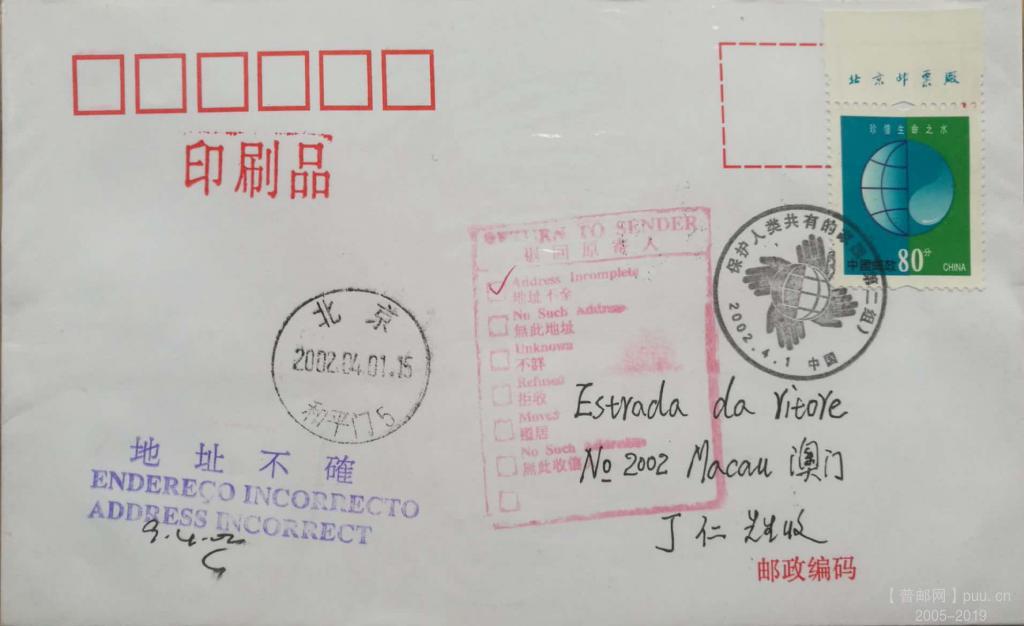 北京邮票厂
印刷品
珍惜生命之水
中国邮政 80分 CHINA
保护人类共有的家园（第二组）
2002.4.1 中国
RETURN TO SENDER
退回原寄人
Address Incomplete
地址不全
No Such Address
無此地址
Unknown
不詳
Refused
拒收
Moved
遷居
No Such
無此收信
北京
2002.04.01.15
和平门5
Estrada da ritore
No 2002 Macau 澳门
丁仁先生收
邮政编码
地址不確
ENDEREÇO INCORRECTO
ADDRESS INCORRECT
9.4.02
【普邮网】puu.cn
2005-2019